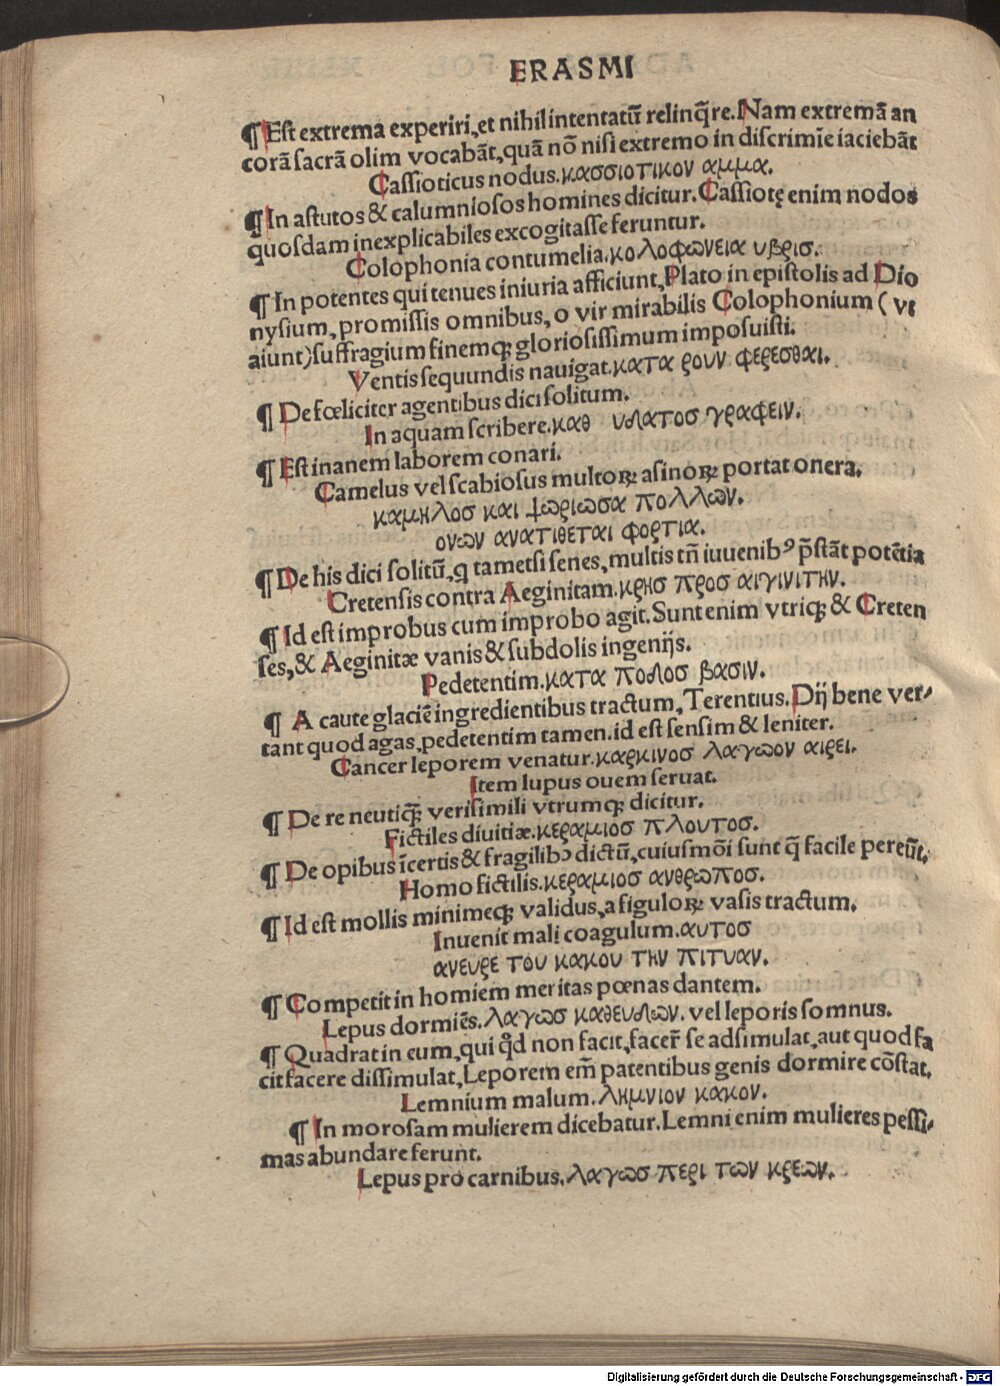 ERASMI
¶ Est extrema experiri, et nihil intentatū relinq̄re. Nam extremā an
corā sacrā olim vocabāt, quā nō nisi extremo in discrimīe iaciebāt
Cassioticus nodus. κασσιοτικον αμμα.
¶ In astutos & calumniosos homines dicitur. Cassiotę enim nodos
quosdam inexplicabiles excogitasse feruntur.
Colophonia contumelia. κολοφωνεια υβρισ.
¶ In potentes qui tenues iniuria afficiunt, Plato in epistolis ad Dio
nysium, promissis omnibus, o vir mirabilis Colophonium (vt
aiunt) suffragium finemqꝫ gloriosissimum imposuisti.
Ventis sequundis nauigat. κατα ρουν φερεσθαι.
¶ De fœliciter agentibus dici solitum.
In aquam scribere. καθ υδατοσ γραφειν.
¶ Est inanem laborem conari.
Camelus vel scabiosus multoꝝ asinoꝝ portat onera.
καμηλοσ και ψωριωσα πολλων.
ονων ανατιθεται φορτια.
¶ De his dici solitū, q tametsi senes, multis tn̄ iuuenibꝰ p̄stāt potētia
Cretensis contra Aeginitam. κρησ προσ αιγινιτην.
¶ Id est improbus cum improbo agit. Sunt enim vtriqꝫ & Creten
ses, & Aeginitæ vanis & subdolis ingenijs.
Pedetentim. κατα ποδοσ βασιν.
¶ A caute glaciē ingredientibus tractum, Terentius. Dij bene ver-
tant quod agas, pedetentim tamen. id est sensim & leniter.
Cancer leporem venatur. καρκινοσ λαγωον αιρει.
Item lupus ouem seruat.
¶ De re neutiq̄ꝫ verisimili vtrumqꝫ dicitur.
Fictiles diuitiæ. κεραμιοσ πλουτοσ.
¶ De opibus īcertis & fragilibꝰ dictū, cuiusmōi sunt q̄ facile pereūt.
Homo fictilis. κεραμιοσ ανθρωποσ.
¶ Id est mollis minimeqꝫ validus, a figuloꝝ vasis tractum.
Inuenit mali coagulum. αυτοσ
ανευρε του κακου την πιτυαν.
¶ Competit in homiem meritas pœnas dantem.
Lepus dormiēs. λαγωσ καθευδων. vel leporis somnus.
¶ Quadrat in eum, qui qd̄ non facit, facer̄ se adsimulat, aut quod fa
cit facere dissimulat, Leporem em̄ patentibus genis dormire cōstat.
Lemnium malum. λημνιον κακον.
¶ In morosam mulierem dicebatur. Lemni enim mulieres pessi-
mas abundare ferunt.
Lepus pro carnibus. λαγωσ περι των κρεων.
Digitalisierung gefördert durch die Deutsche Forschungsgemeinschaft - DFG